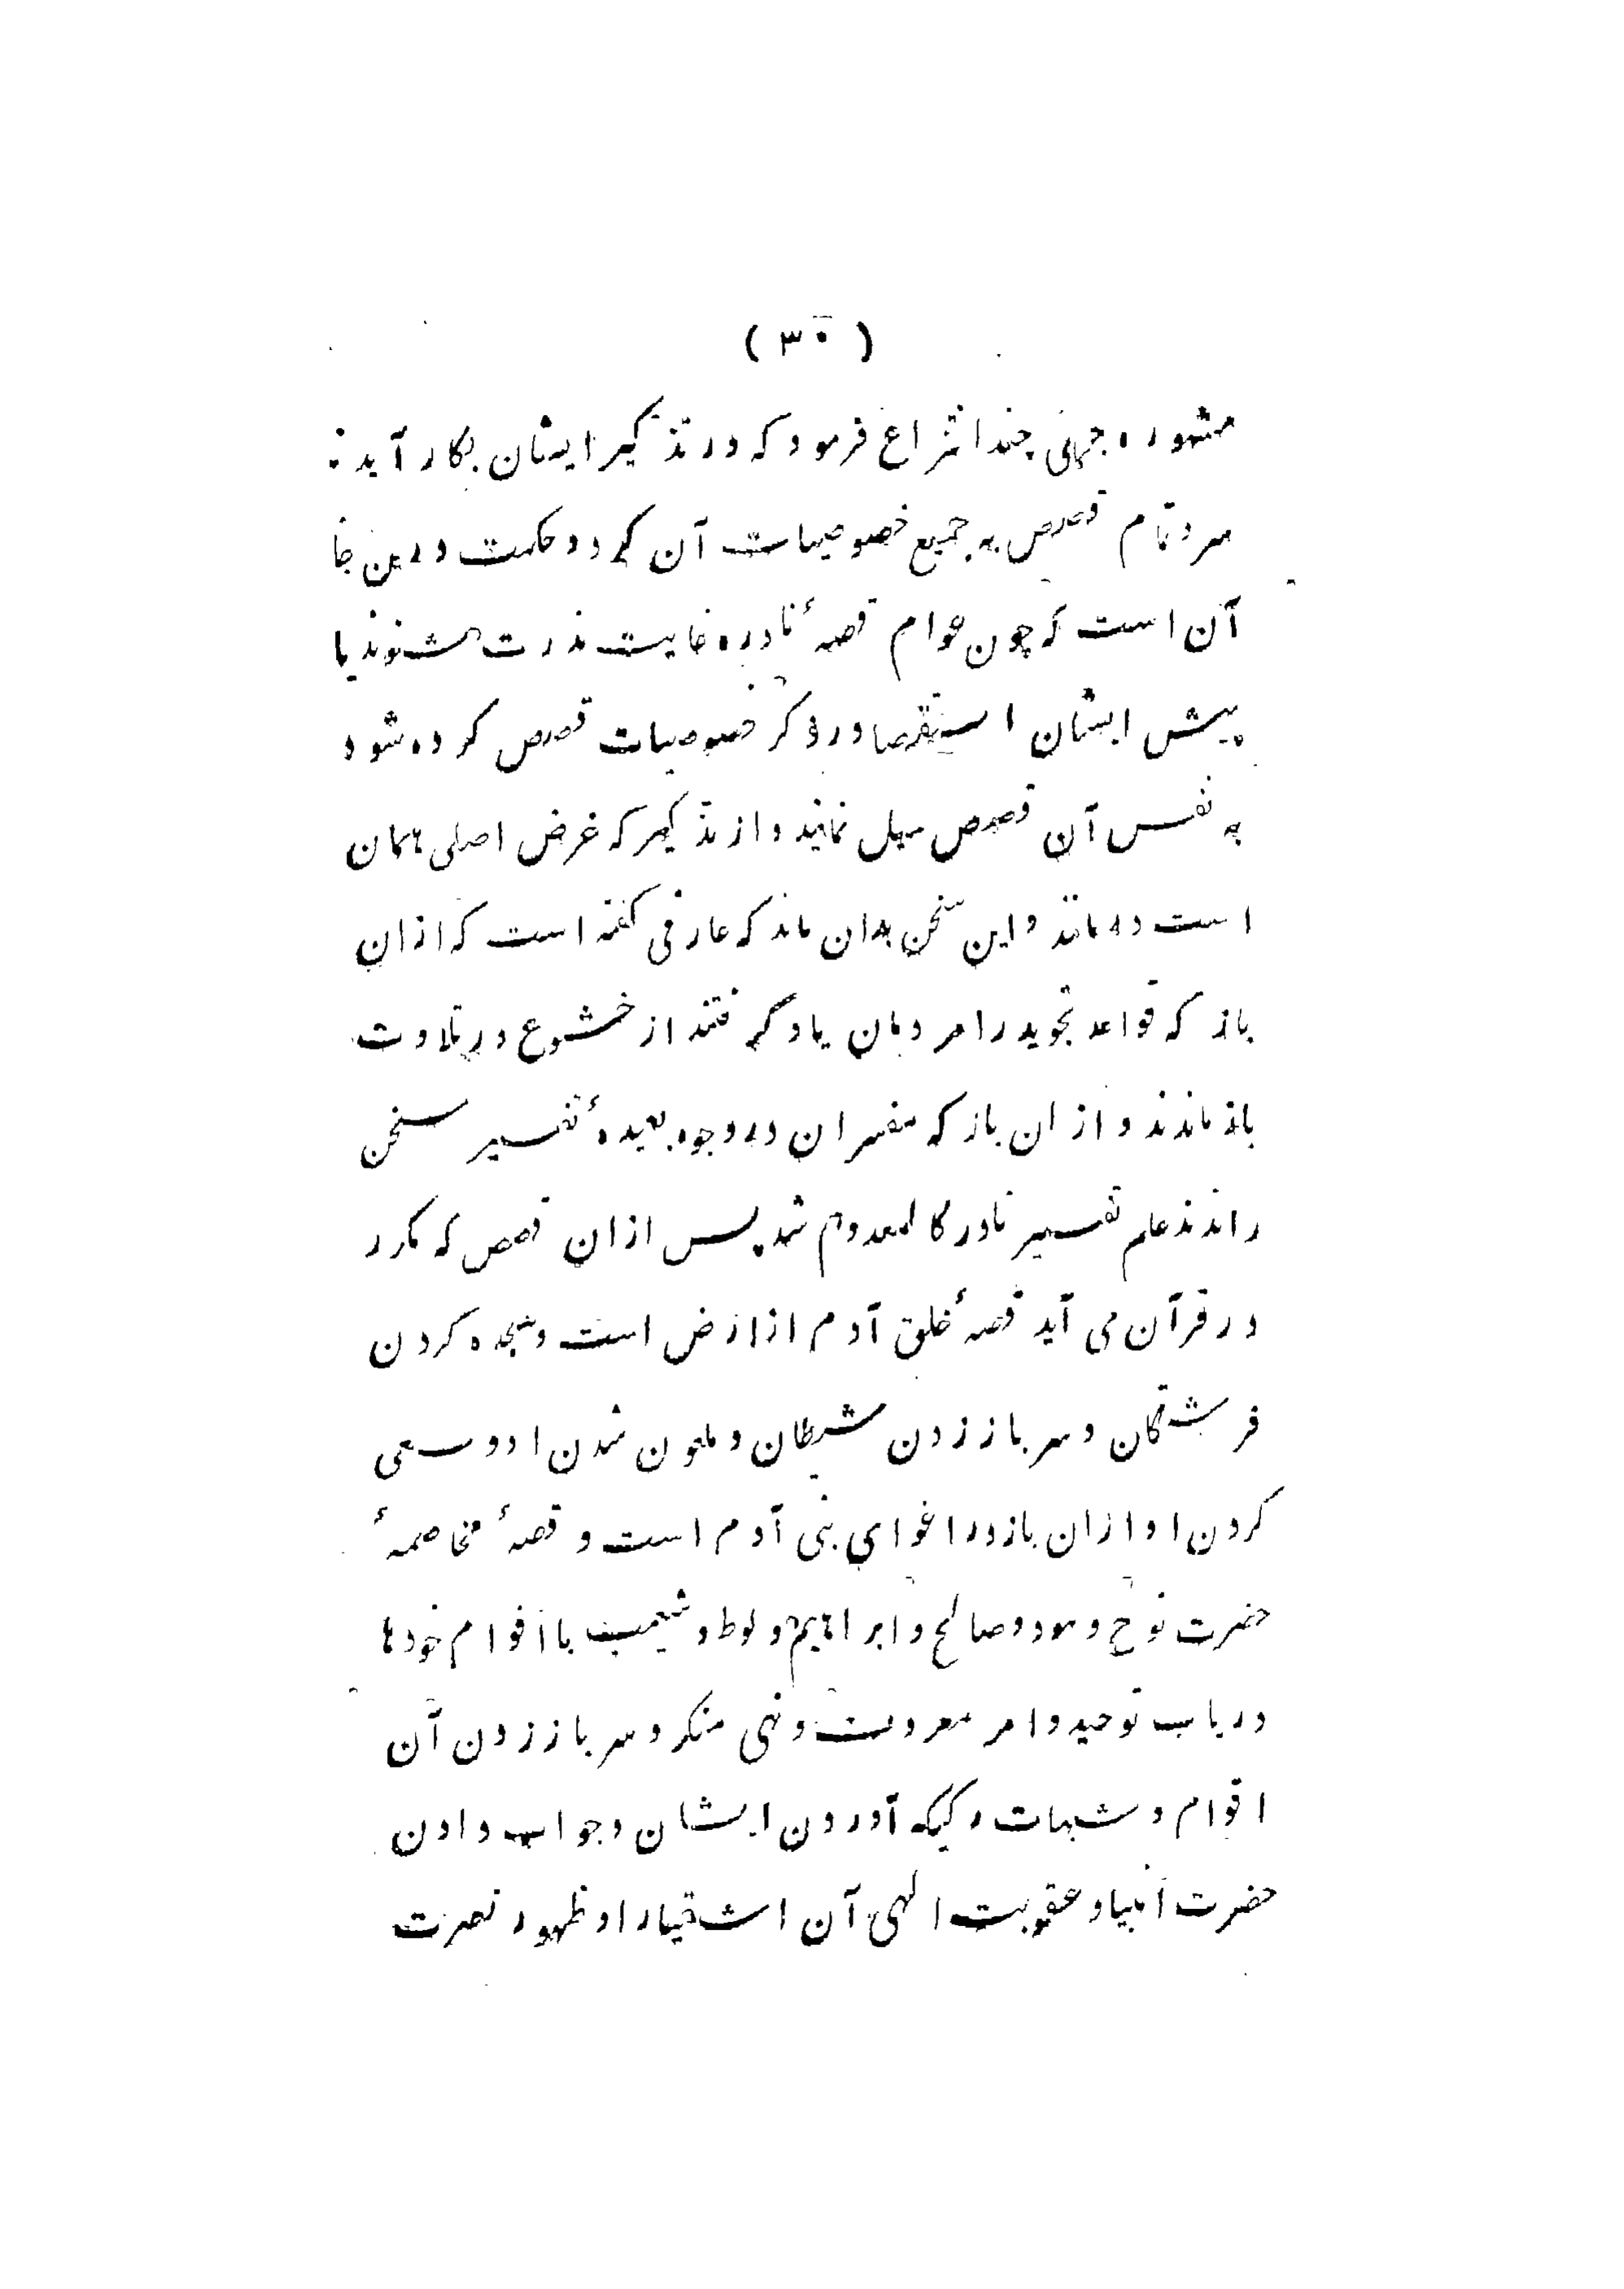 ( ۳۰ )
مشهوره جملی چند انتزاع فرمود که در تذکیر ایشان بکار آید نه
سرد تمام قصص به جمیع خصوصیات آن کرد و حکمت درین جا
آن است که چون عوام قصهٔ نادره غایت ندرت بشنوند یا
پیش ایشان استقصا در ذکر خصوصیات قصص کرده شود
به نفس آن قصص میل نمایند و از تذکیر که غرض اصلی همان
است در مانند و این سخن بدان ماند که عارفی گفته است که ازان
باز که قواعد تجوید را مردمان یاد گرفتند از خشوع در تلاوت
باز ماندند و ازان باز که مفسران در وجوه بعیدهٔ تفسیر سخن
راندند علم تفسیر نادر کالمعدوم شد پس ازان قصص که مکرر
در قرآن می آید قصهٔ خلق آدم از ارض است و سجده کردن
فرشتگان و سر باز زدن شیطان و ملعون شدن او و سعی
کردن او ازان باز در اغوای بنی آدم است و قصهٔ مخاصمهٔ
حضرت نوح و هود و صالح و ابراهیم و لوط و شعیب با اقوام خودها
در باب توحید و امر معروف و نهی منکر و سر باز زدن آن
اقوام و شبهات رکیکه آوردن ایشان و جواب دادن
حضرت انبیا و عقوبت الهی آن اشقیا را و ظهور نصرت